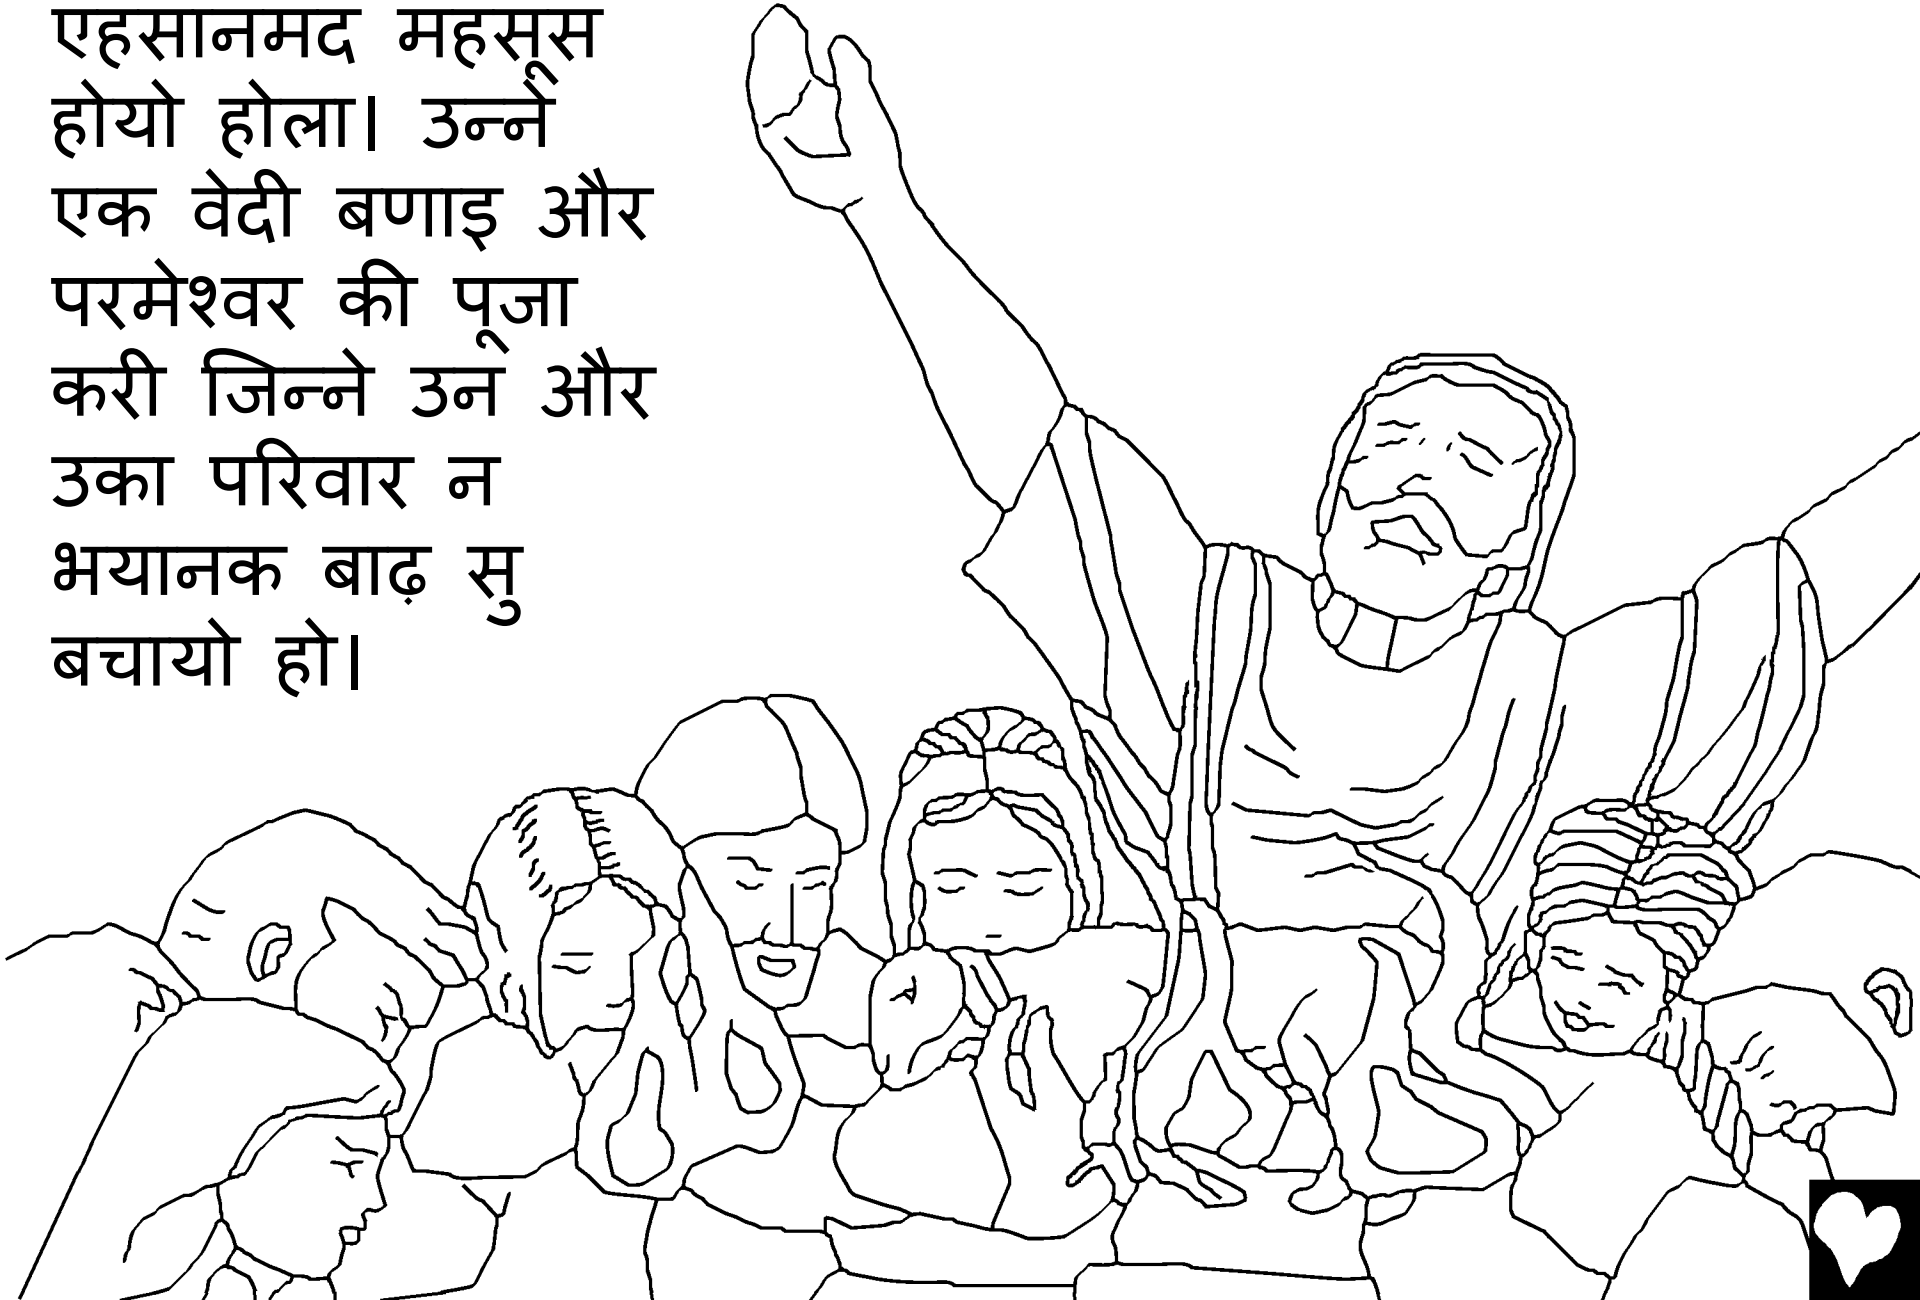 एहसानमद महसूस
होयो होला। उन्ने
एक वेदी बणाइ और
परमेश्वर की पूजा
करी जिन्ने उन और
उका परिवार न
भयानक बाढ़ सु
बचायो हो।